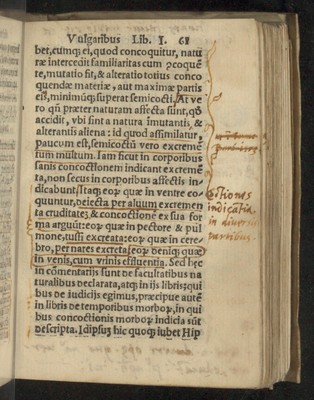 Vulgaribus Lib. I. 61
bet, cumq; ei, quod concoquitur, natu
ræ intercedit familiaritas cum ꝯcoquē
te, mutatio fit, & alteratio totius conco
quendæ materiæ, aut maximæ partis
eiꝰ, minimūq; superat semicocti. At ve
ro qũ præter naturam affecta sunt, qđ
accidit, vbi sint a natura imutantis, &
alterantis aliena: id quod assimilatur,
paucum est, semicoctũ vero excremē
tum multum. Iam sicut in corporibus
sanis concoctionem indicant excremē
ta, non secus in corporibus affectis in-
dicabunt. Itaq; eoꝝ quæ in ventre co-
quuntur, deiecta per aluum excremen
ta cruditatē, & concoctionē ex sua for
ma arguūt: eoꝝ quæ in pectore & pul
mone, tussi excreata: eoꝝ quæ in cere-
bro, per nares excreta: eoꝝ deniq; quæ
in venis, cum vrinis effluentia. Sed hęc
in cōmentarijs sunt de facultatibus na
turalibus declarata, atq; in ijs libris, qui
bus de iudicijs egimus, præcipue autē
in libris de temporibus morboꝝ, in qui
bus concoctionis morboꝝ indicia sūt
descripta. Idipsuꝫ hic quoq; iubet Hip
indicatia
in diuersis
partibus.